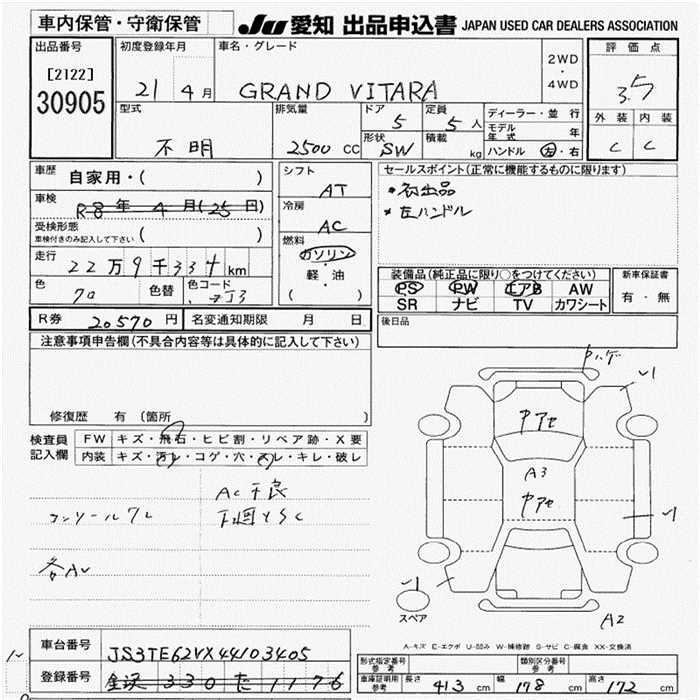 車内保管・守衛保管
JU 愛知 出品申込書 JAPAN USED CAR DEALERS ASSOCIATION
出品番号
[2122]
30905
初度登録年月
21 4月
車名・グレード
GRAND VITARA
2WD
・
4WD
評価点
3.5
外装 内装
C C
型式
不明
排気量
2500 CC
ドア
5
定員
5人
形状
SW
積載
kg
ディーラー・並行
モデル年式 年
ハンドル 左・右
車歴
自家用・( )
車検
R-8年 4月(25日)
受検形態
車検付きのみ記入して下さい ( )
走行
22万9千334km
色
色替
色コード
ZJ3
シフト
AT
冷房
AC
燃料
ガソリン
・
軽・油
( )
セールスポイント(正常に機能するものに限ります)
*初出品
*左ハンドル
装備品(純正品に限り○をつけてください)
PS PW エアB AW
SR ナビ TV カワシート
新車保証書
有・無
後日品
R券 20570円 名変通知期限 月 日
注意事項申告欄(不具合内容等は具体的に記入して下さい)
修復歴 有 (箇所 )
検査員記入欄
FW キズ・飛石・ヒビ割・リペア跡・X要
内装 キズ・汚レ・コゲ・穴・スレ・キレ・破レ
AC不良
下廻りSC
コンソールワレ
各AU
中ハゲ
U1
中アセ
A3
中アセ
U1
U1
スペア
A2
A-キズ E-エクボ U-凹み W-補修跡 S-サビ C-腐食 XX-交換済
車台番号
JS3TE62VX44103405
登録番号
金沢 330 た 1176
型式指定番号 参考
類別区分番号 参考
車庫証明用 参考 長さ 413 cm 幅 178 cm 高さ 172 cm